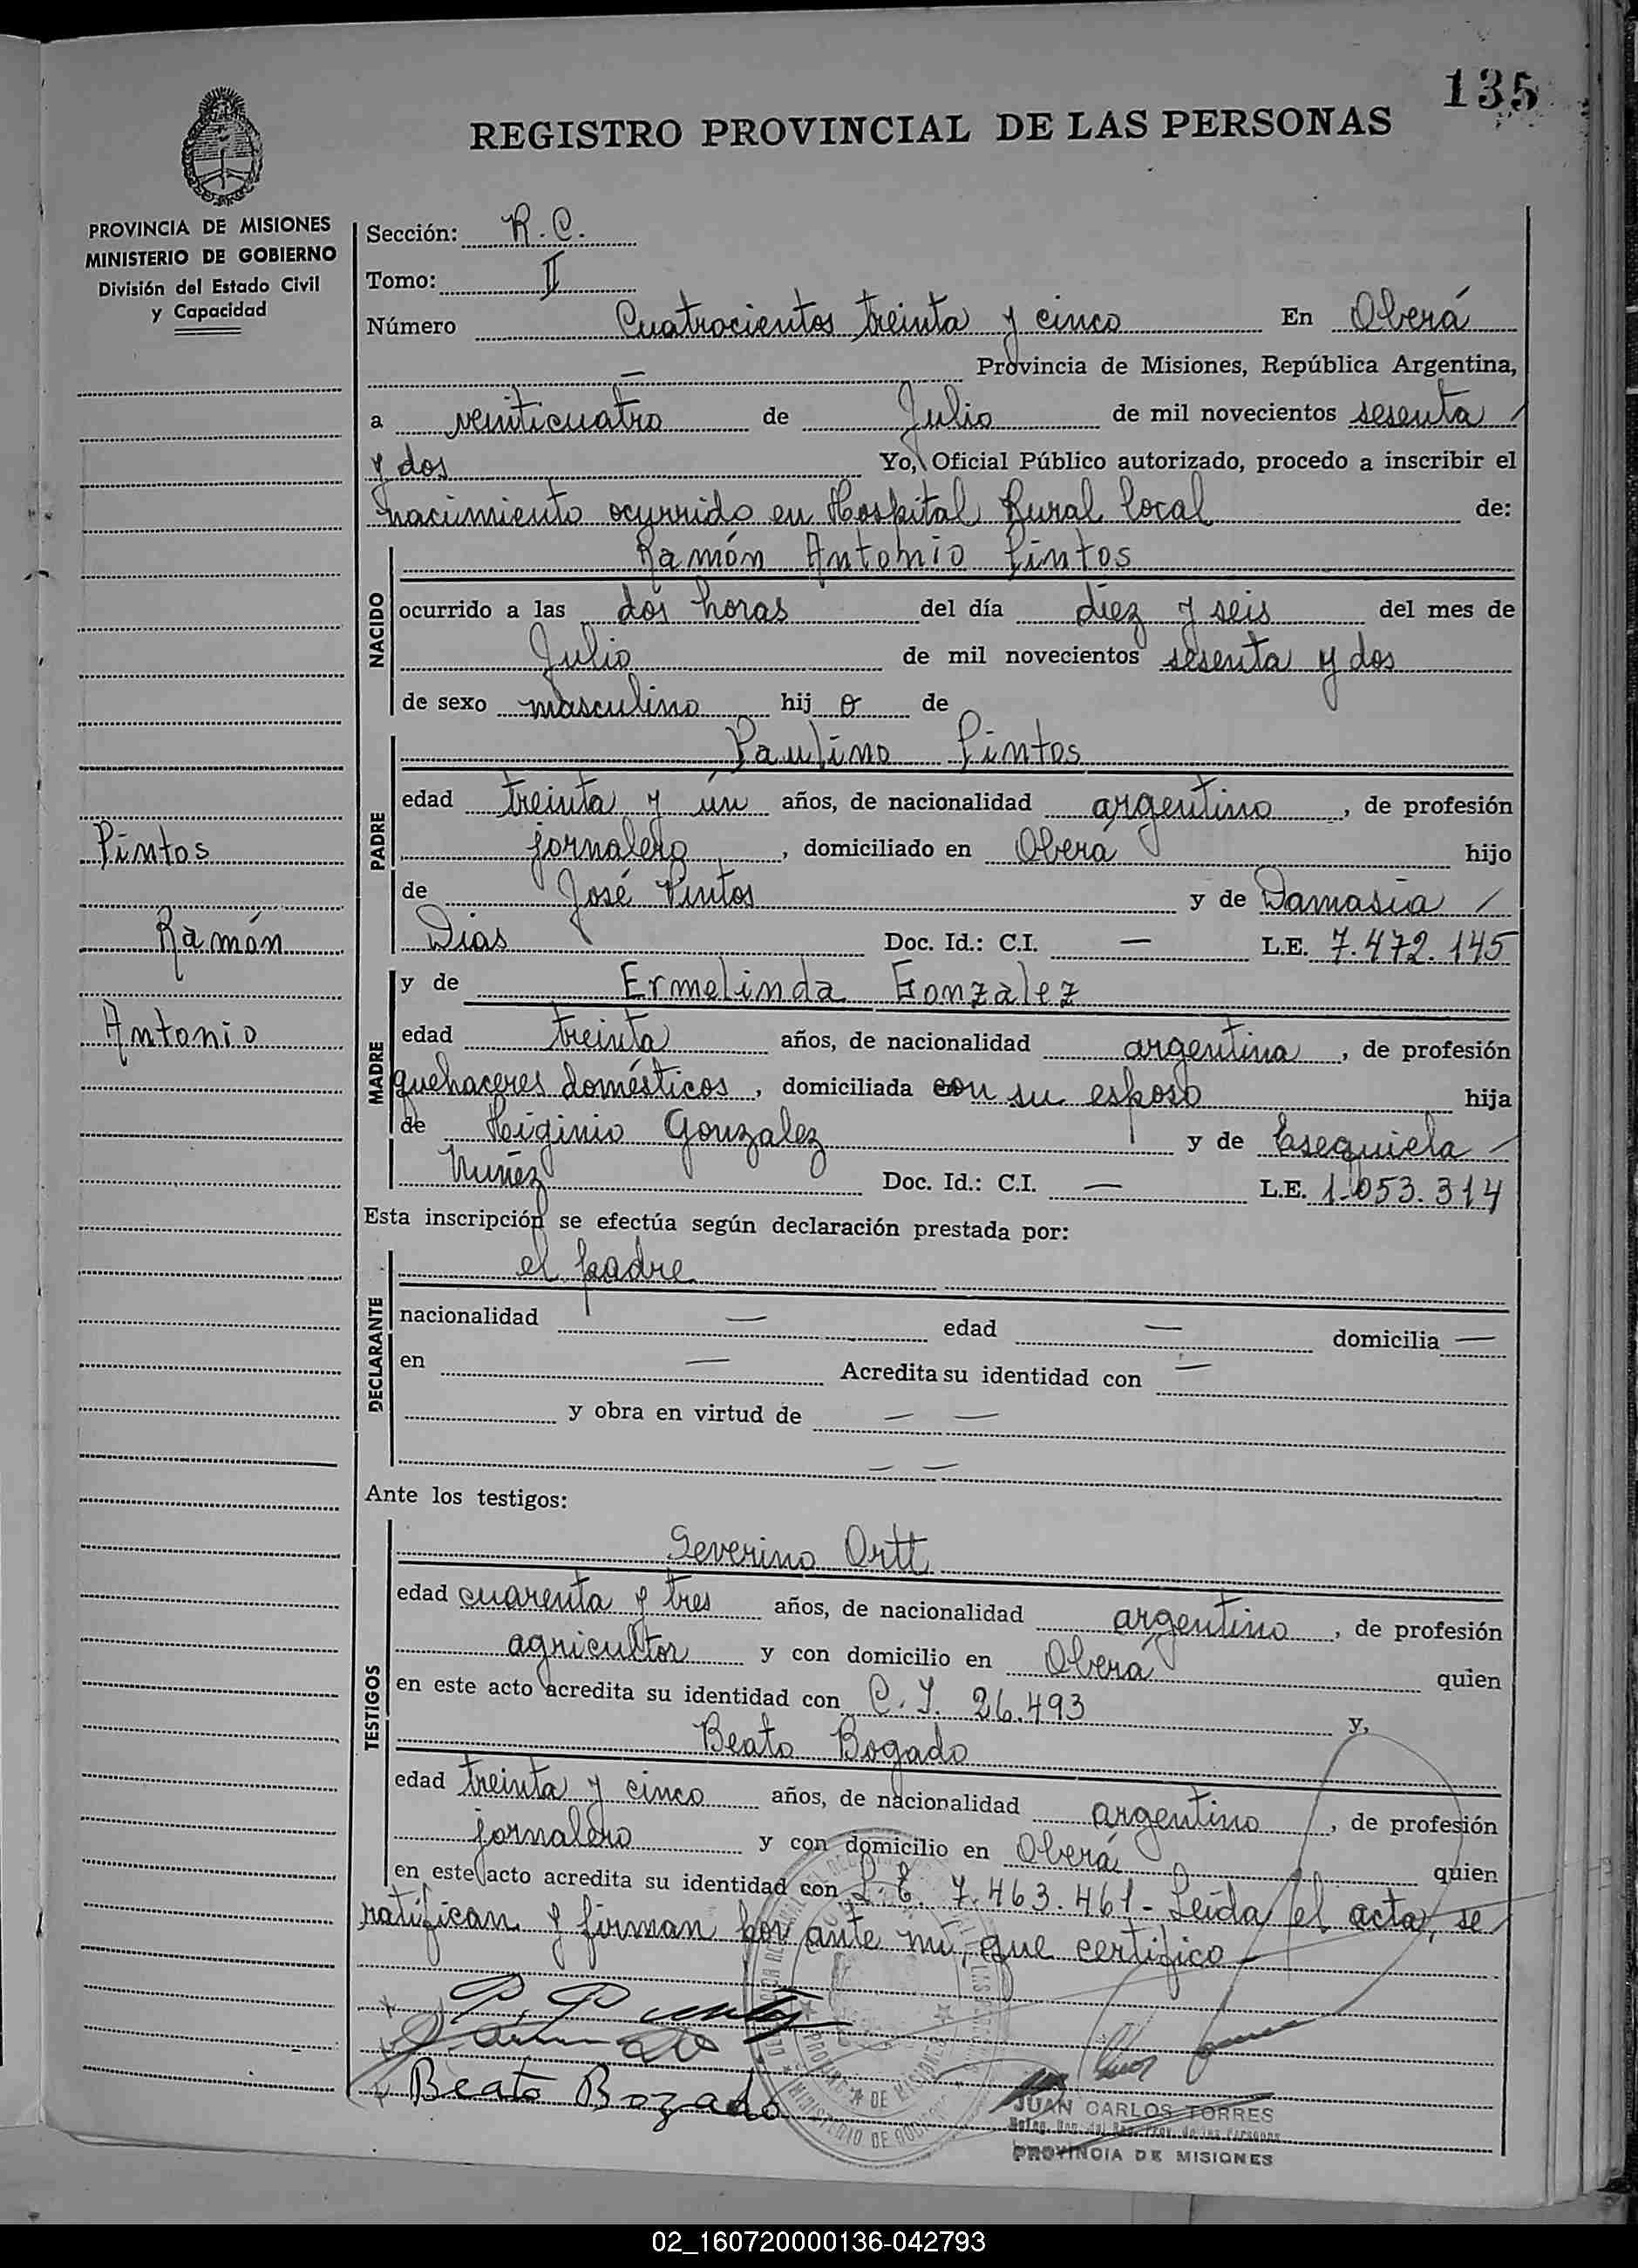 135
REGISTRO PROVINCIAL DE LAS PERSONAS
PROVINCIA DE MISIONES
MINISTERIO DE GOBIERNO
División del Estado Civil
y Capacidad
Sección: R.C.
Tomo: II
Número Cuatrocientos treinta y cinco En Oberá
— Provincia de Misiones, República Argentina,
a veniticuatro de Julio de mil novecientos sesenta /
y dos Yo, Oficial Público autorizado, procedo a inscribir el
nacimiento ocurrido en Hospital Rural local de:
NACIDO
Ramón Antonio Pintos
ocurrido a las dos horas del día diez y seis del mes de
Julio de mil novecientos sesenta y dos
de sexo masculino hij o de
PADRE
Paulino Pintos
edad treinta y ún años, de nacionalidad argentino, de profesión
jornalero, domiciliado en Oberá hijo
de José Pintos y de Damasia /
Dias Doc. Id.: C.I. — L.E. 7.472.145
Pintos
Ramón
Antonio
MADRE
y de Ermelinda Gonzàlez
edad treinta años, de nacionalidad argentina, de profesión
quehaceres domésticos, domiciliada con su esposo hija
de Higinio Gonzalez y de Esequiela —
Nuñez Doc. Id.: C.I. — L.E. 1.053.314
Esta inscripción se efectúa según declaración prestada por:
DECLARANTE
el padre
nacionalidad — edad — domicilia —
en — Acredita su identidad con —
y obra en virtud de — —
— —
Ante los testigos:
TESTIGOS
Severino Ortt
edad cuarenta y tres años, de nacionalidad argentino, de profesión
agricultor y con domicilio en Oberá quien
en este acto acredita su identidad con C.I. 26.493 y,
Beato Bogado
edad treinta y cinco años, de nacionalidad argentino, de profesión
jornalero y con domicilio en Oberá quien
en este acto acredita su identidad con L.E. 7.463.461- Leída el acta, se
ratifican y firman por ante mí, que certifico
P. Pintos
Beato Bozado
PROVINCIA DE MISIONES
MINISTERIO DE GOBIERNO
JUAN CARLOS TORRES
PROVINCIA DE MISIONES
02_160720000136-042793